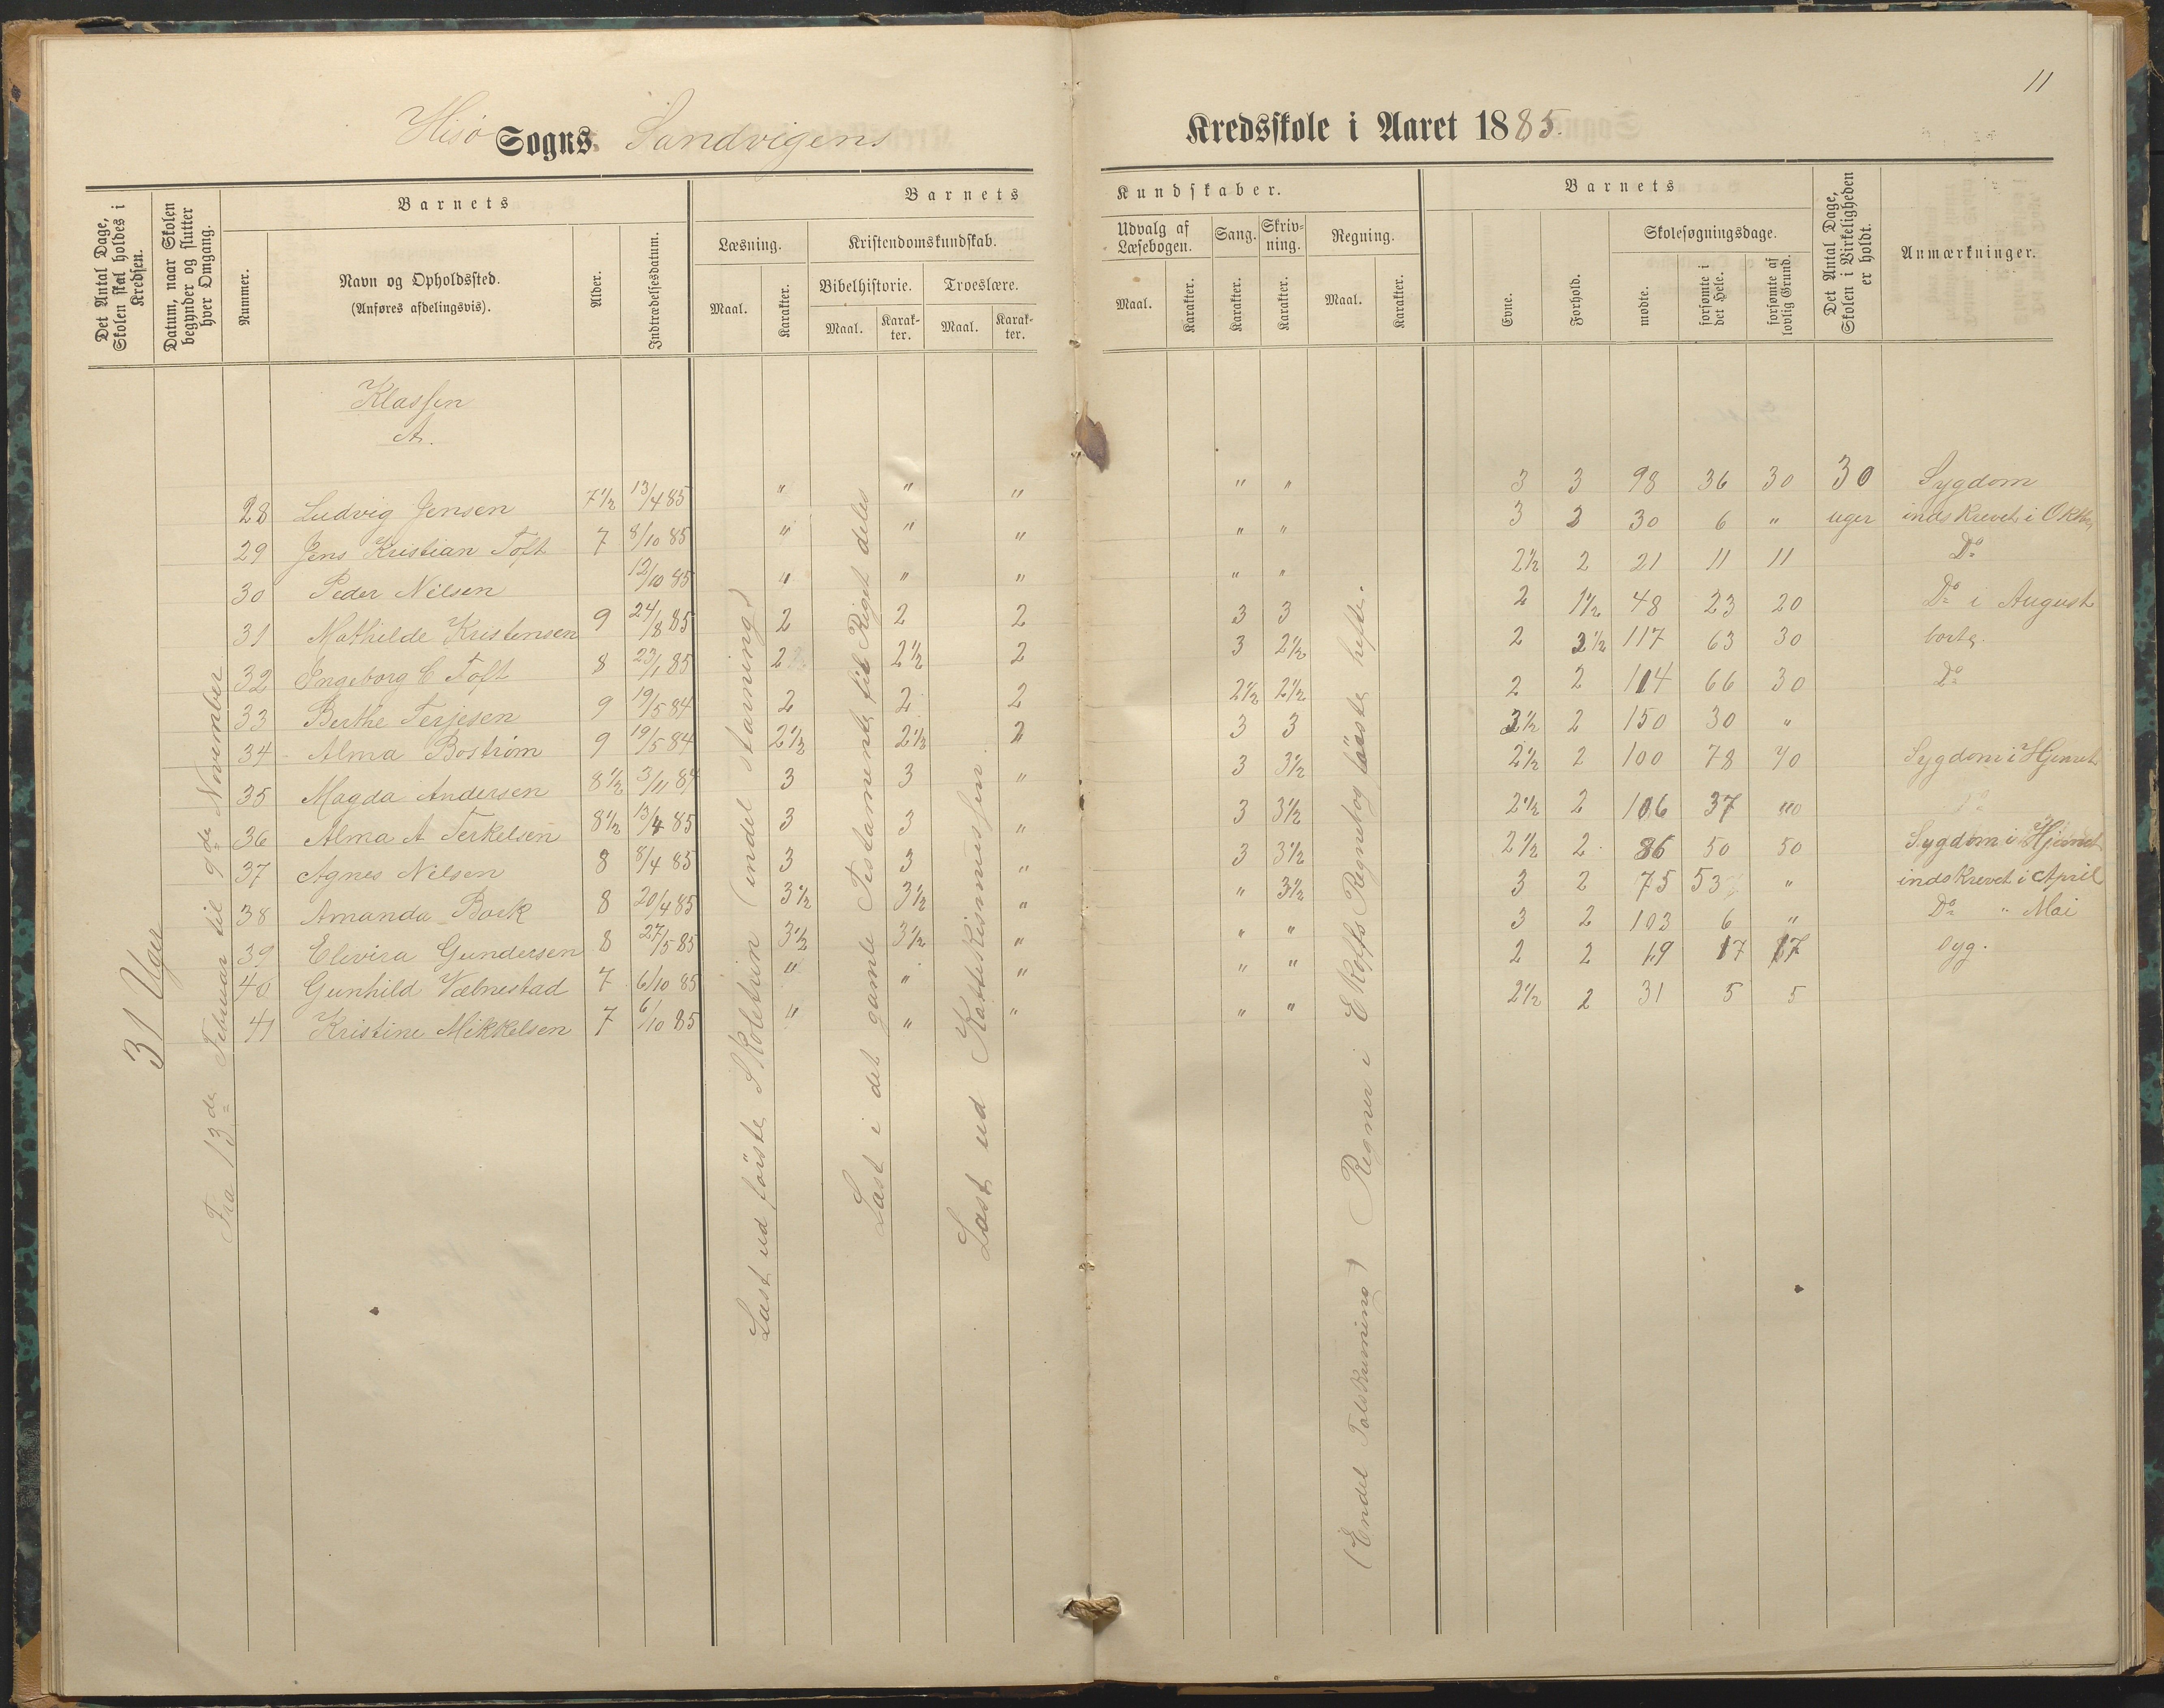 11
Hisø Sogns Sandvigens Kredsskole i Aaret 1885.
Det Antal Dage, Skolen skal holdes i Kredsen.
Datum, naar Skolen begynder og slutter hver Omgang.
Barnets
Nummer.
Navn og Opholdssted.
(Anføres afdelingsvis).
Alder.
Indtrædelsesdatum.
Barnets Kundskaber.
Læsning.
Maal. Karakter.
Kristendomskundskab.
Bibelhistorie. Troeslære.
Maal. Karakter. Maal. Karakter.
Udvalg af Læsebogen.
Maal. Karakter.
Sang. Karakter.
Skrivning. Karakter.
Regning.
Maal. Karakter.
Barnets
Evne. Forhold.
Skolesøgningsdage.
mødte. forsømte i det Hele. forsømte af lovlig Grund.
Det Antal Dage, Skolen i Virkeligheden er holdt.
Anmærkninger.
Klassen
A.
31 Uger
Fra 13de Februar til 9de November
28 Ludvig Jensen 7 1/2 13/4 85 " " " " " 3 3 98 36 30 30 Sygdom
29 Jens Kristian Toft 7 8/10 85 " " " " " 3 3 30 6 " uger indskrevet i Oktbr
30 Peder Nilsen 12/10 85 " " " " " 2 1/2 2 21 11 11 Do
31 Mathilde Kristensen 9 24/8 85 2 2 2 3 3 2 1 1/2 48 23 20 Do i August
32 Ingeborg C Toft 8 23/1 85 2 2 1/2 2 3 2 1/2 2 2 1/2 117 63 30 borte.
33 Berthe Terjesen 9 19/5 84 2 2 2 2 1/2 2 1/2 2 2 114 66 30 Do
34 Alma Bostrøm 9 19/5 84 2 1/2 2 1/2 2 3 3 3 1/2 2 150 30 "
35 Magda Andersen 8 1/2 3/11 84 3 3 " 3 3 1/2 2 1/2 2 100 78 70 Sygdom i Hjemet
36 Alma A Terkelsen 8 1/2 13/4 85 3 3 " 3 3 1/2 2 1/2 2 106 37 Do
37 Agnes Nilsen 8 8/4 85 3 3 " 3 3 1/2 2 1/2 2 86 50 50 Sygdom i Hjemet
38 Amanda Bork 8 20/4 85 3 1/2 3 1/2 " " 3 1/2 3 2 75 53 " indskrevet i April
39 Elevira Gundersen 8 27/5 85 3 1/2 3 1/2 " " " 3 2 103 6 " Do " Mai
40 Gunhild Væbnestad 7 6/10 85 " " " " " 2 2 19 17 17 syg.
41 Kristine Mikkelsen 7 6/10 85 " " " " " 2 1/2 2 31 5 5
Læst ud første Skoletrin (endel stavning)
Læst i det gamle Testamente til Riget deles
Læst ud Katekismussen
(Endel Talskrivning) Regner i Ekoffs Regnebog første hefte.